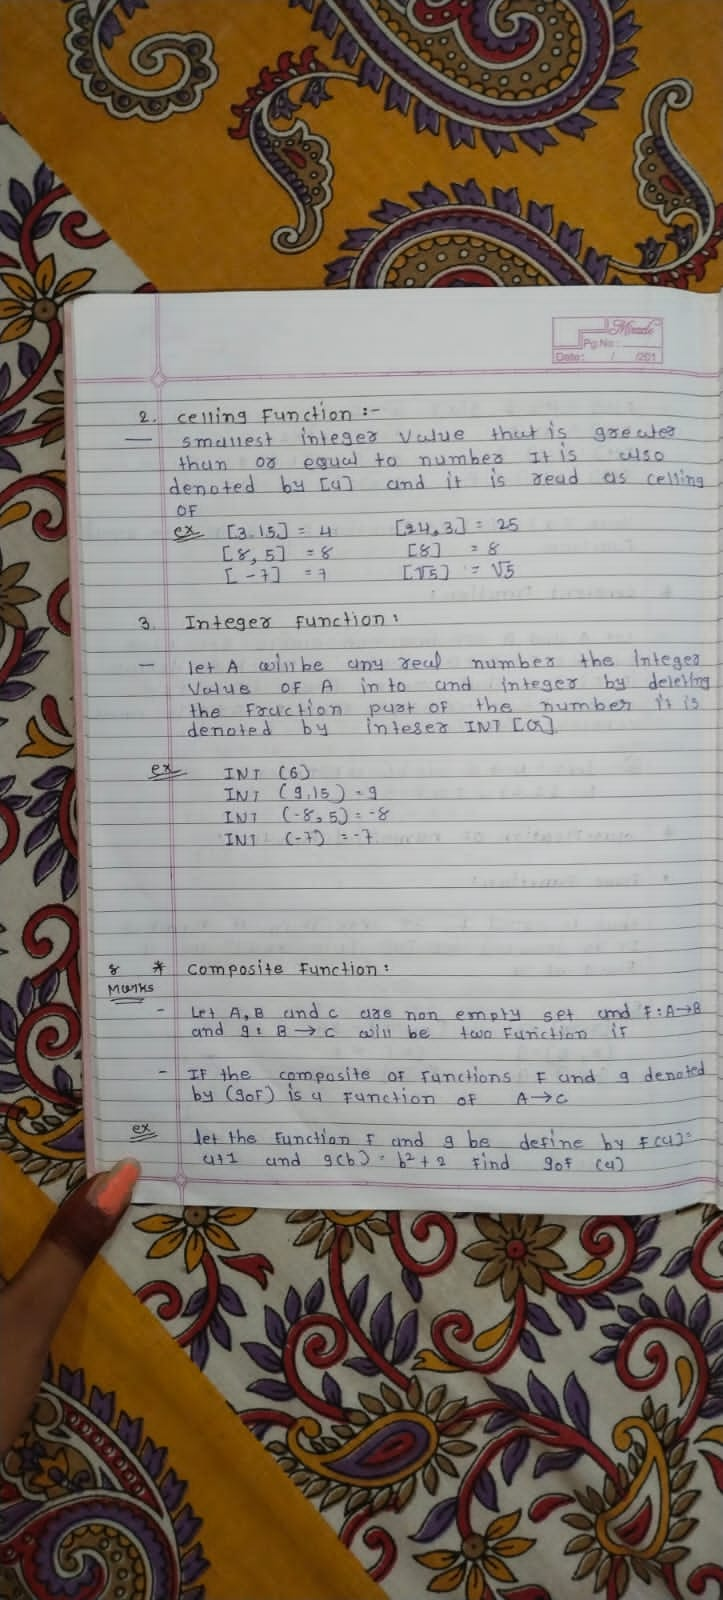 Miracle
Pg.No :
Date : / /201
2. celling Function :-
— smallest integer Value that is greater
than or equal to number It is also
denoted by [a] and it is read as celling
OF
ex [3.15] = 4 [24,3] = 25
[8,5] = 8 [8] = 8
[-7] = 7 [√5] = √5
3. Integer function :
— let A will be any real number the Integer
Value OF A in to and integer by deleting
the Fraction part OF the number it is
denoted by inteser INT [a]
ex INT (6)
INT (9.15) = 9
INT (-8,5) = -8
INT (-7) = -7
8 * composite function :
Marks
- Let A, B and c are non empty set and F: A→B
and g: B → C will be two Function if
- IF the composite of functions F and g denoted
by (goF) is a Function OF A→C
ex let the function f and g be define by F(a)=
a+1 and g(b) = b²+2 Find goF (a)